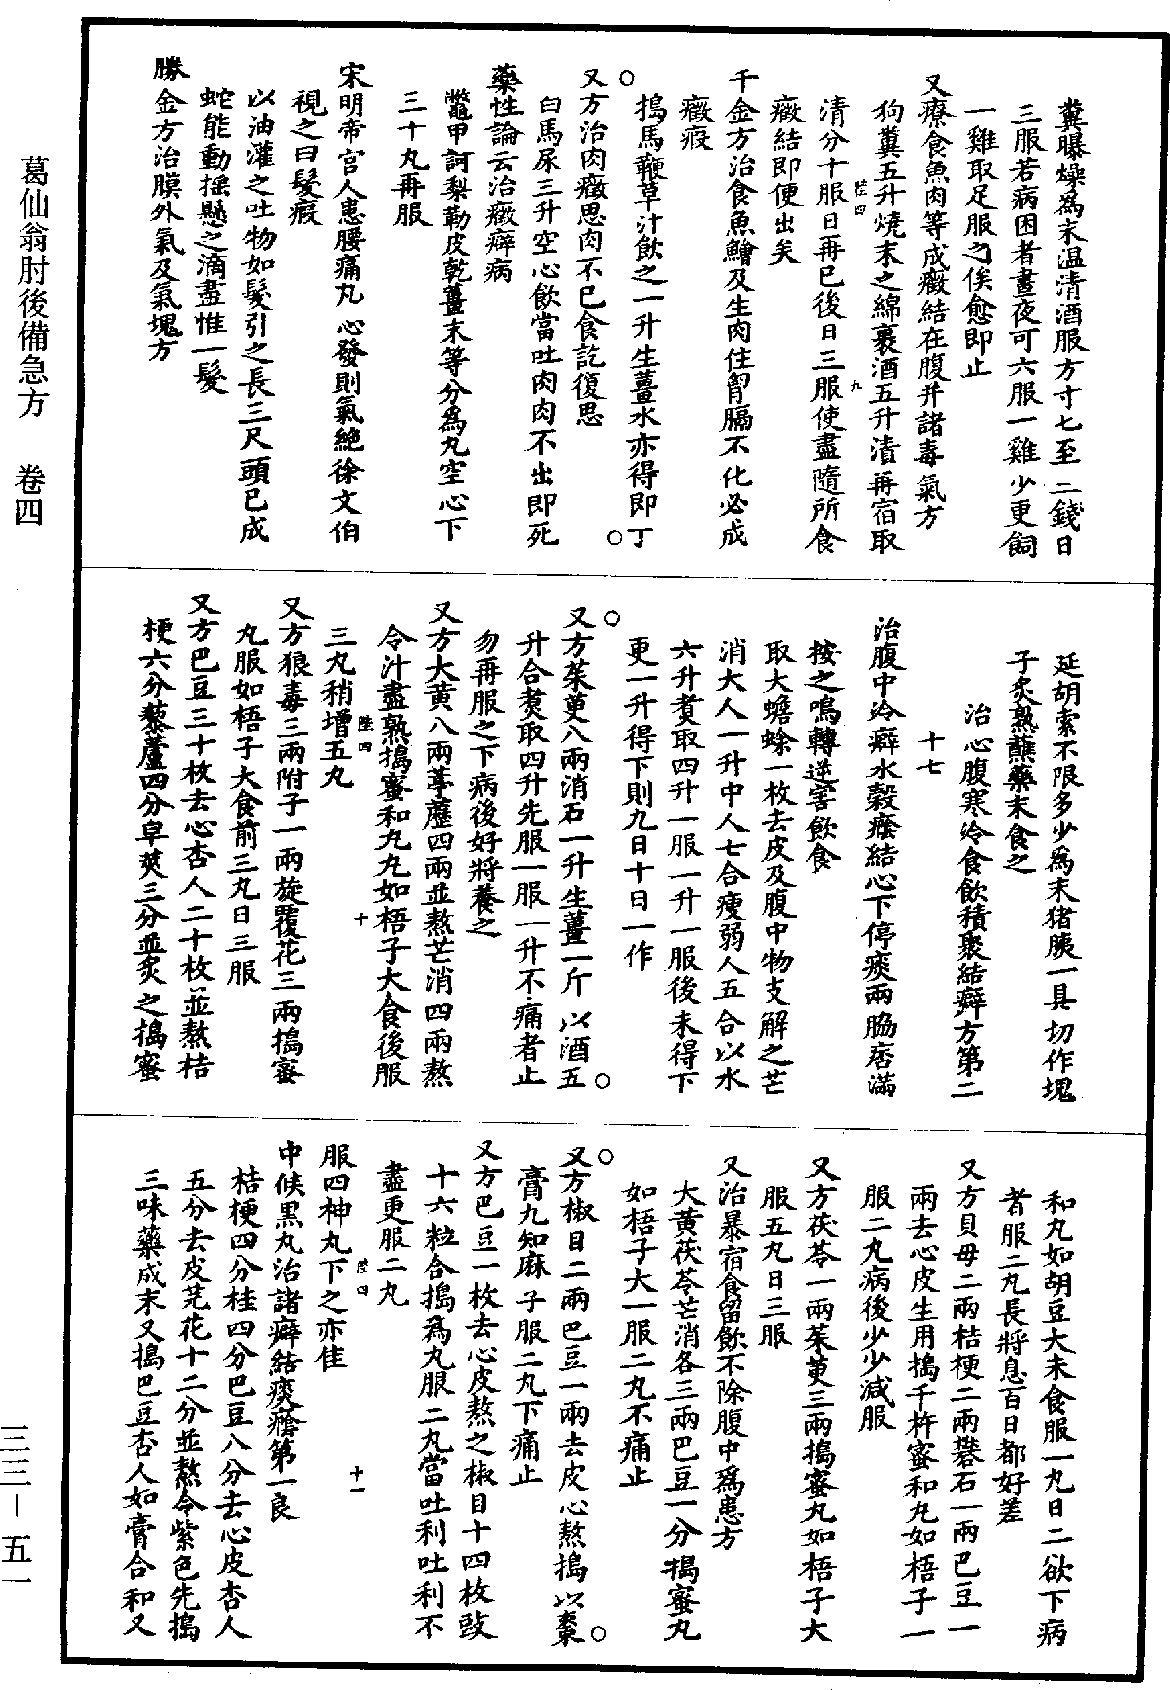 糞曝燥為末温清酒服方寸七至二錢日
三服若病困者晝夜可六服一雞少更飼
一雞取足服之俟愈即止
又療食魚肉等成癥結在腹并諸毒氣方
狗糞五升燒末之綿裹酒五升漬再宿取
清分十服日再已後日三服使盡隨所食
癥結即便出矣
千金方治食魚鱠及生肉住胷膈不化必成
癥瘕
搗馬鞭草汁飲之一升生薑水亦得即丁
又方治肉癥思肉不已食訖復思
白馬尿三升空心飲當吐肉肉不出即死
藥性論云治癥癖病
鼈甲訶梨勒皮乾薑末等分為丸空心下
三十丸再服
宋明帝宮人患腰痛丸心發則氣絶徐文伯
視之曰髮瘕
以油灌之吐物如髮引之長三尺頭已成
蛇能動揺懸之滴盡惟一髮
勝金方治膜外氣及氣塊方
陸四
九
延胡索不限多少為末猪胰一具切作塊
子炙熟蘸藥末食之
治心腹寒冷食飲積聚結癖方第二
十七
治腹中冷癖水穀癊結心下停痰兩脇痞滿
按之鳴轉逆害飲食
取大蟾蜍一枚去皮及腹中物支解之芒
消大人一升中人七合瘦弱人五合以水
六升煑取四升一服一升一服後未得下
更一升得下則九日十日一作
又方茱萸八兩消石一升生薑一斤以酒五
升合煑取四升先服一服一升不痛者止
勿再服之下病後好將養之
又方大黄八兩葶藶四兩並熬芒消四兩熬
令汁盡熟搗蜜和丸丸如梧子大食後服
三丸稍增五丸
陸四
十
又方狼毒三兩附子一兩旋覆花三兩搗蜜
丸服如梧子大食前三丸日三服
又方巴豆三十枚去心杏人二十枚並熬桔
梗六分藜蘆四分皁莢三分並炙之搗蜜
和丸如胡豆大未食服一丸日二欲下病
者服二丸長將息百日都好差
又方貝母二兩桔梗二兩礬石一兩巴豆一
兩去心皮生用搗千杵蜜和丸如梧子一
服二丸病後少少減服
又方茯苓一兩茱萸三兩搗蜜丸如梧子大
服五丸日三服
又治暴宿食留飲不除腹中為患方
大黄茯苓芒消各三兩巴豆一分搗蜜丸
如梧子大一服二丸不痛止
又方椒目二兩巴豆一兩去皮心熬搗以棗
膏丸如麻子服二丸下痛止
又方巴豆一枚去心皮熬之椒目十四枚豉
十六粒合搗為丸服二丸當吐利吐利不
盡更服二丸
服四神丸下之亦佳
陸四
十一
中候黒丸治諸癖結痰癊第一良
桔梗四分桂四分巴豆八分去心皮杏人
五分去皮芫花十二分並熬令紫色先搗
三味藥成末又搗巴豆杏人如膏合和又
葛仙翁肘後備急方　卷四
三三－五一